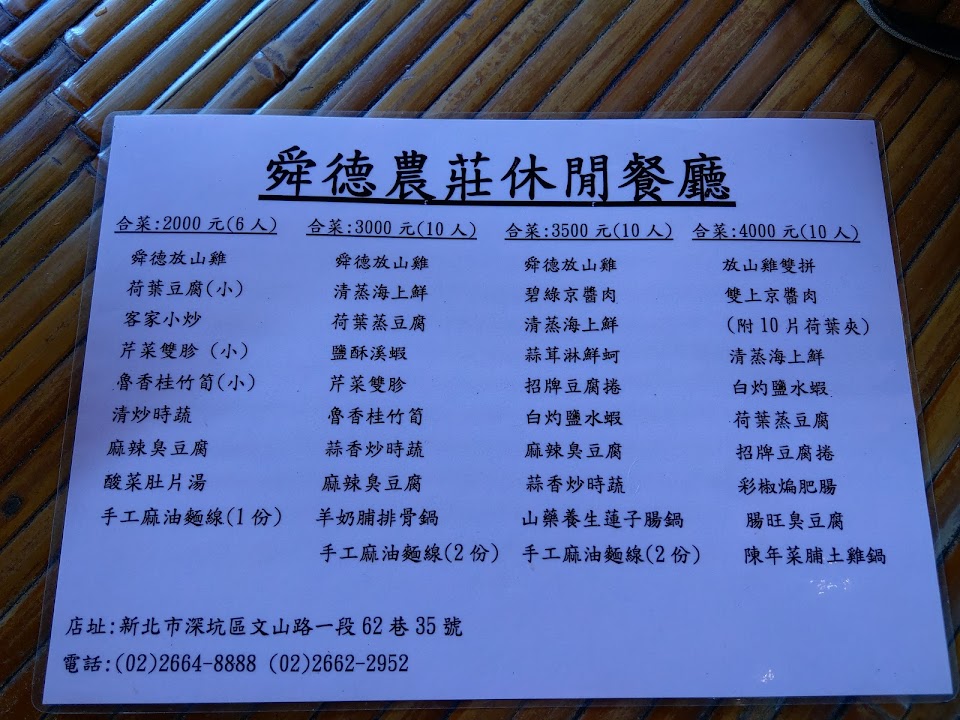 舜德農莊休閒餐廳
合菜:2000 元(6 人)
舜德放山雞
荷葉豆腐(小)
客家小炒
芹菜雙胗 (小)
魯香桂竹筍(小)
清炒時蔬
麻辣臭豆腐
酸菜肚片湯
手工麻油麵線(1 份)
合菜:3000 元(10 人)
舜德放山雞
清蒸海上鮮
荷葉蒸豆腐
鹽酥溪蝦
芹菜雙胗
魯香桂竹筍
蒜香炒時蔬
麻辣臭豆腐
羊奶脯排骨鍋
手工麻油麵線(2 份)
合菜:3500 元(10 人)
舜德放山雞
碧綠京醬肉
清蒸海上鮮
蒜茸淋鮮蚵
招牌豆腐捲
白灼鹽水蝦
麻辣臭豆腐
蒜香炒時蔬
山藥養生蓮子腸鍋
手工麻油麵線(2 份)
合菜:4000 元(10 人)
放山雞雙拼
雙上京醬肉
(附 10 片荷葉夾)
清蒸海上鮮
白灼鹽水蝦
荷葉蒸豆腐
招牌豆腐捲
彩椒煸肥腸
腸旺臭豆腐
陳年菜脯土雞鍋
店址:新北市深坑區文山路一段 62 巷 35 號
電話:(02)2664-8888 (02)2662-2952